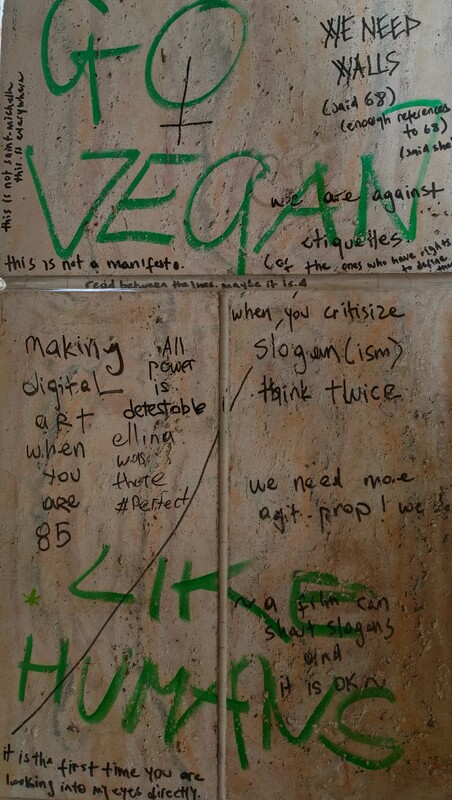 GO
VEGAN
WE NEED
WALLS
(said 68)
(enough references
to 68)
(said she
this is not saint-michelle
this is everywhere
we are against
etiquettes.
(of the ones who have rights
to define
this is not a manifesto.
read between the lines. maybe it is.
making
digital
art
when
you
are
85
All
power
is
detestable
ellina
was
there
#Perfect
when you critisize
slogan(ism)
think twice
we need more
agit prop! we
LIKE
HUMANS
~ a film can
shout slogans
and
it is OK ~
it is the first time you are
looking into my eyes directly.